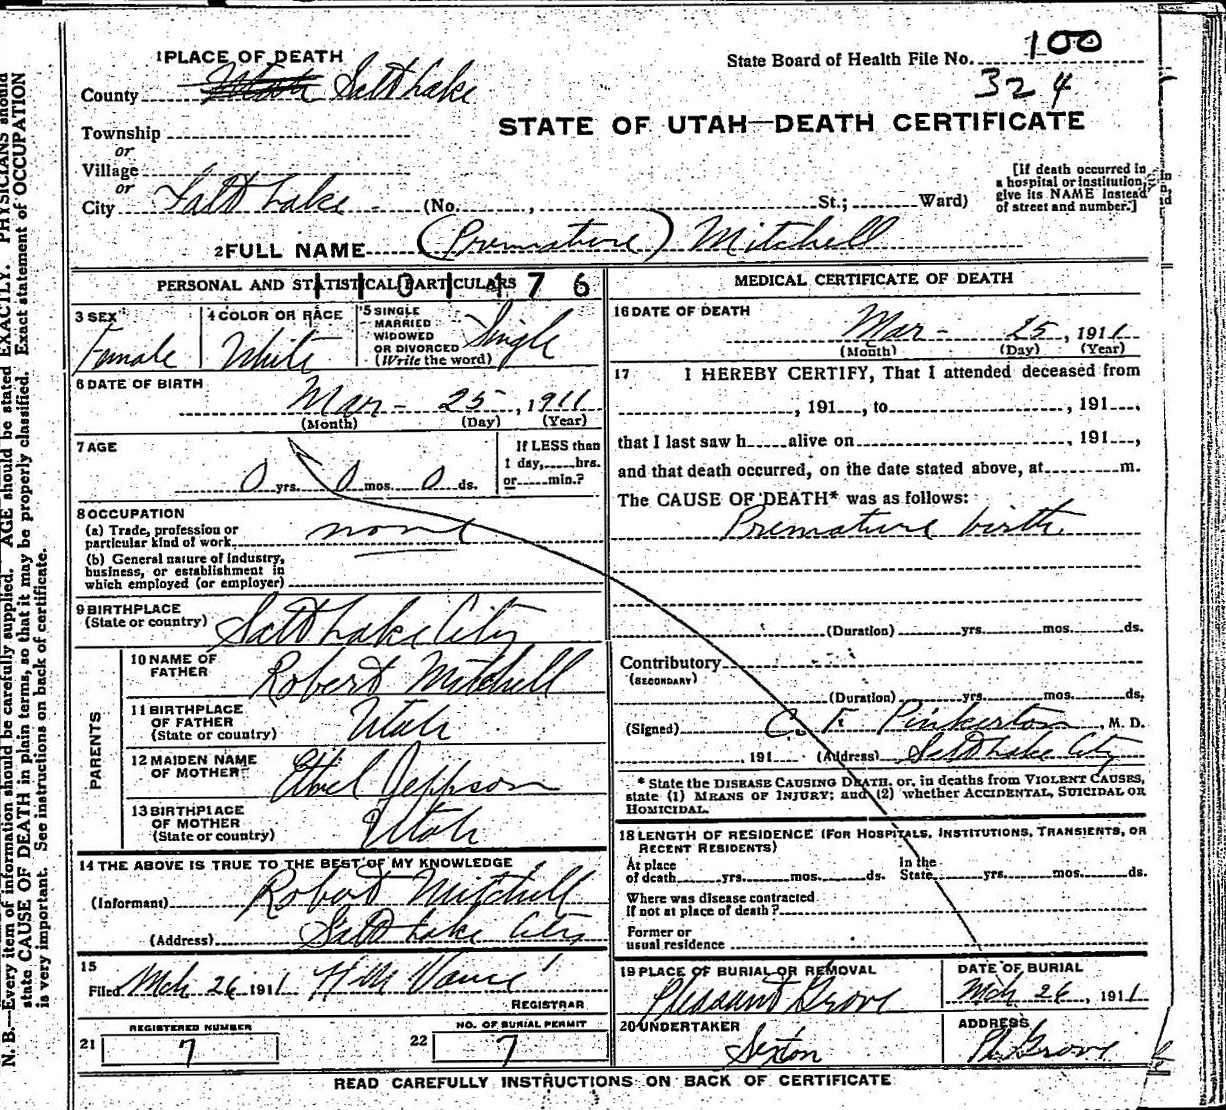 1 PLACE OF DEATH
State Board of Health File No. 100
324
County Utah Salt Lake
STATE OF UTAH—DEATH CERTIFICATE
Township
or
Village
or
City Salt Lake (No. , St.; Ward)
[If death occurred in
a hospital or institution,
give its NAME instead
of street and number.]
2 FULL NAME (Premature) Mitchell
PERSONAL AND STATISTICAL PARTICULARS
3 SEX Female
4 COLOR OR RACE White
5 SINGLE
MARRIED
WIDOWED
OR DIVORCED
(Write the word) Single
6 DATE OF BIRTH
Mar - 25, 1911
(Month) (Day) (Year)
7 AGE
0 yrs. 0 mos. 0 ds.
If LESS than
1 day, hrs.
or min.?
8 OCCUPATION
(a) Trade, profession or
particular kind of work none
(b) General nature of industry,
business, or establishment in
which employed (or employer)
9 BIRTHPLACE
(State or country) Salt Lake City
PARENTS
10 NAME OF
FATHER Robert Mitchell
11 BIRTHPLACE
OF FATHER
(State or country) Utah
12 MAIDEN NAME
OF MOTHER Ethel Jeppson
13 BIRTHPLACE
OF MOTHER
(State or country) Utah
14 THE ABOVE IS TRUE TO THE BEST OF MY KNOWLEDGE
(Informant) Robert Mitchell
(Address) Salt Lake City
15
Filed Mch 26 1911
REGISTRAR
REGISTERED NUMBER
21 7
NO. OF BURIAL PERMIT
22 7
MEDICAL CERTIFICATE OF DEATH
16 DATE OF DEATH
Mar - 25, 1911
(Month) (Day) (Year)
17 I HEREBY CERTIFY, That I attended deceased from
, 191 , to , 191 ,
that I last saw h alive on , 191 ,
and that death occurred, on the date stated above, at m.
The CAUSE OF DEATH* was as follows:
Premature birth
(Duration) yrs. mos. ds.
Contributory
(SECONDARY)
(Duration) yrs. mos. ds.
(Signed) C. F. Pinkerton, M. D.
, 191 (Address) Salt Lake City
* State the DISEASE CAUSING DEATH, or, in deaths from VIOLENT CAUSES,
state (1) MEANS OF INJURY; and (2) whether ACCIDENTAL, SUICIDAL OR
HOMICIDAL.
18 LENGTH OF RESIDENCE (FOR HOSPITALS, INSTITUTIONS, TRANSIENTS, OR
RECENT RESIDENTS)
At place
of death yrs. mos. ds.
In the
State yrs. mos. ds.
Where was disease contracted
if not at place of death?
Former or
usual residence
19 PLACE OF BURIAL OR REMOVAL
Pleasant Grove
DATE OF BURIAL
Mch 26, 1911
20 UNDERTAKER
Sexton
ADDRESS
Pl. Grove
READ CAREFULLY INSTRUCTIONS ON BACK OF CERTIFICATE
N. B.—Every item of information should be carefully supplied. AGE should be stated EXACTLY. PHYSICIANS should
state CAUSE OF DEATH in plain terms, so that it may be properly classified. Exact statement of OCCUPATION
is very important. See instructions on back of certificate.